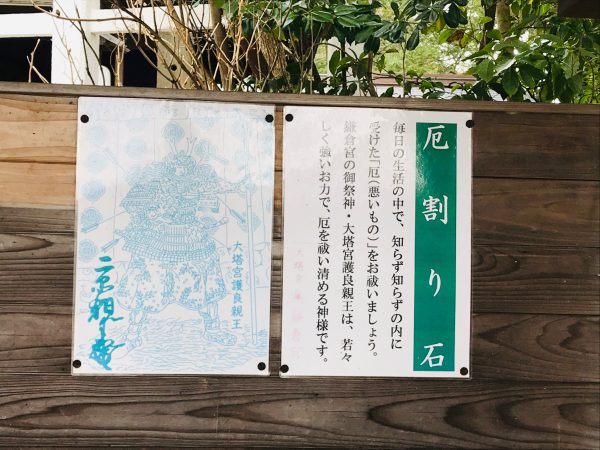 厄割り石
毎日の生活の中で、知らず知らずの内に
受けた「厄(悪いもの)」をお祓いましょう。
鎌倉宮の御祭神・大塔宮護良親王は、若々
しく強いお力で、厄を祓い清める神様です。
大塔宮護良親王